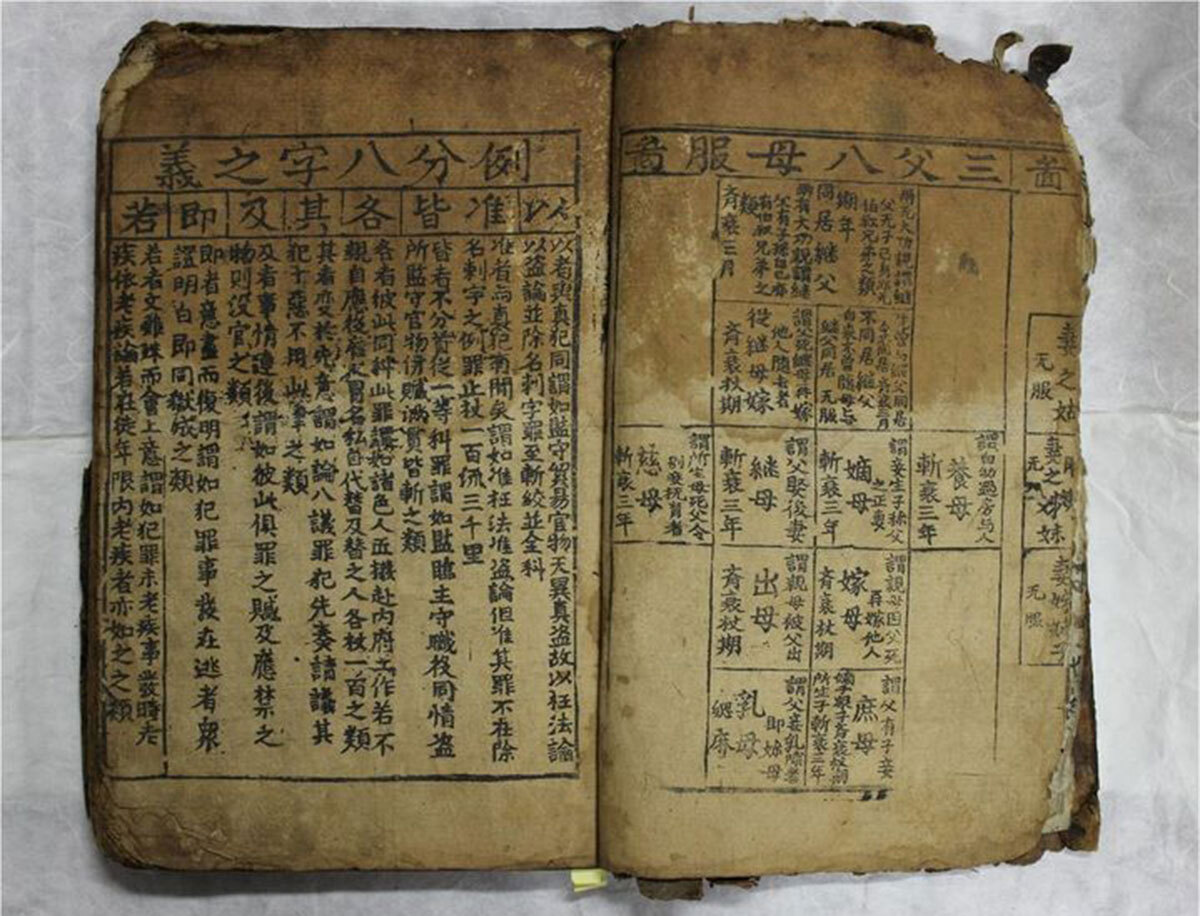 啚
妻之姑
无服
妻之姊妹
无服
无服
三父八母服啚
兩无大功親謂継
父无子已身亦无
伯叔兄弟之類
期年
同居継父
兩有大功親謂継
父有子孫自已亦
有伯叔兄弟之
類
斉衰三月
不同居継父
自来不曾隨母与
継父同居 无服
謂父死継母再嫁
他人隨去者
從継母嫁
斉衰杖期
謂自幼過房与人
養母
斬衰三年
謂妾生子稱父
之正妻
嫡母
斬衰三年
謂父娶後妻
継母
斬衰三年
謂所生母死父令
別妾撫育者
慈母
斬衰三年
謂親母因父死
再嫁他人
嫁母
斉衰杖期
謂親母被父出
出母
斉衰杖期
謂父有子妾
庶母
嫡子衆子斉衰杖期
所生子斬衰三年
謂父妾乳哺者
即妳母
乳母
緦麻
例分八字之義
以 准 皆 各 其 及 即 若
以者與真犯同謂如監守貿易官物无異真盗故以枉法論
以盗論並除名刺字罪至斬絞並全科
准者与真犯有間矣謂如准枉法准盗論但准其罪不在除
名刺字之例罪止杖一百流三千里
皆者不分首從一等科罪謂如監臨主守職役同情盗
所監守官物併贓滿貫皆斬之類
各者彼此同科此罪謂如諸色人匠撥赴內府工作若不
親自應役雇人冒名私自代替及替之人各杖一百之類
其者变於先意謂如論八議罪犯先奏請議其
犯十惡不用此律之類
及者事情連後謂如彼此俱罪之贓及應禁之
物則没官之類
即者意盡而復明謂如犯罪事發在逃者衆
證明白即同獄成之類
若者文雖殊而會上意謂如犯罪未老疾事發時老
疾依老疾論若在徒年限內老疾者亦如之之類